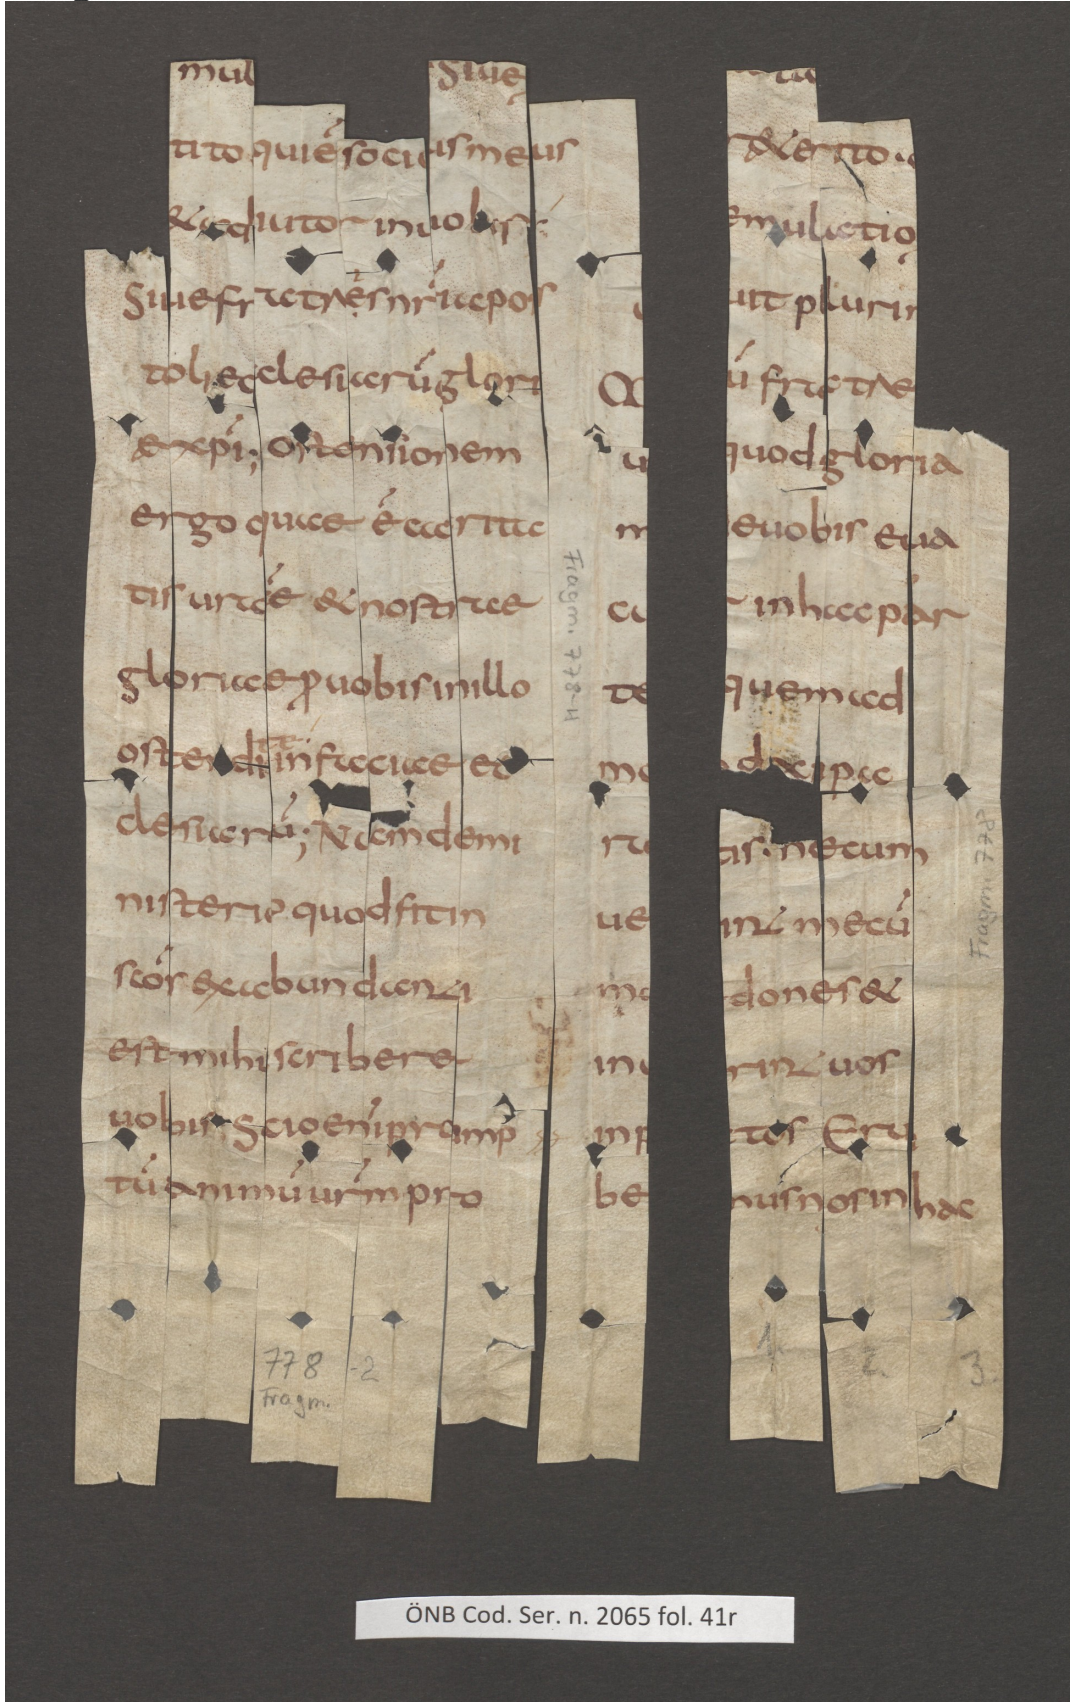 mul Siue
tito qui ē socius meus
& adiutor in uobis;
Siue fratres nr̄i apos
toli ecclesiarū glori
ae xp̄i; ostensionem
ergo quae ē carita
tis ur̄ae & nostrae
gloriae ꝓ uobis in illo
ostendite in faciae ec
clesiarū; Nam de mi
nisterio quod fit in
sc̄os ex abundanti
est mihi scribere
uobis. Scio enī promp
tū animū ur̄m pro
& erito
emulatio
uit plurim
ū fratre
quod gloria
m e uobis eua
cu r in hac par
te quem ad
mo d
ra tis. ne cum
ue rint mecū
ma dones &
inu rint uos
inp atos Eru
be mus nos in hac
Fragm. 778-4
778 -2
Fragm.
Fragm. 778
1.
2.
3.
ÖNB Cod. Ser. n. 2065 fol. 41r